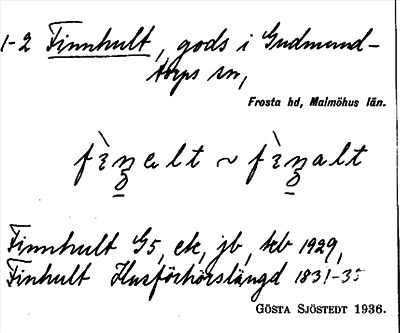 1-2 Finnhult, gods i Gudmund-
torps sn,
Frosta hd, Malmöhus län.
fìn̥ɐlt ~ fìn̥alt
Finnhult G5, ek, jb, tkb 1929,
Finhult Husförhörslängd 1831-35
GÖSTA SJÖSTEDT 1936.